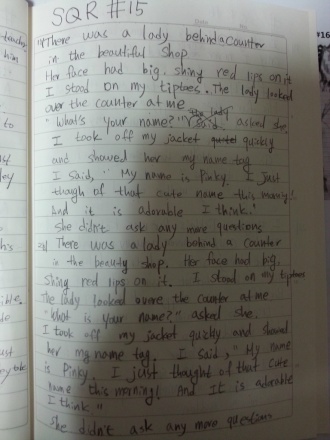 SQR #15
1) There was a lady behind a counter
in the beautiful shop.
Her face had big, shiny red lips on it
I stood on my tiptoes. The lady looked
over the counter at me
"What's your name?" the lady asked she.
I took off my jacket quickly
and showed her my name tag
I said, "My name is Pinky. I just
though of that cute name this morning!
And it is adorable I think."
She didn't ask any more questions
2) There was a lady behind a counter
in the beauty shop. Her face had big,
shiny red lips on it. I stood on my tiptoes
The lady looked overe the counter at me
"What is your name?" asked she.
I took off my jacket quckly and showed
her my name tag. I said, "My name
is Pinky. I just thought of that cute
name this morning! And It is adorable
I think"
She didn't ask any more questions
#16